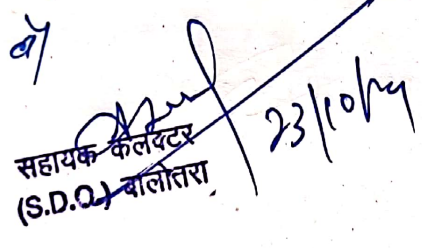 सहायक कलेक्टर
(S.D.O.) बालोतरा
23/10/